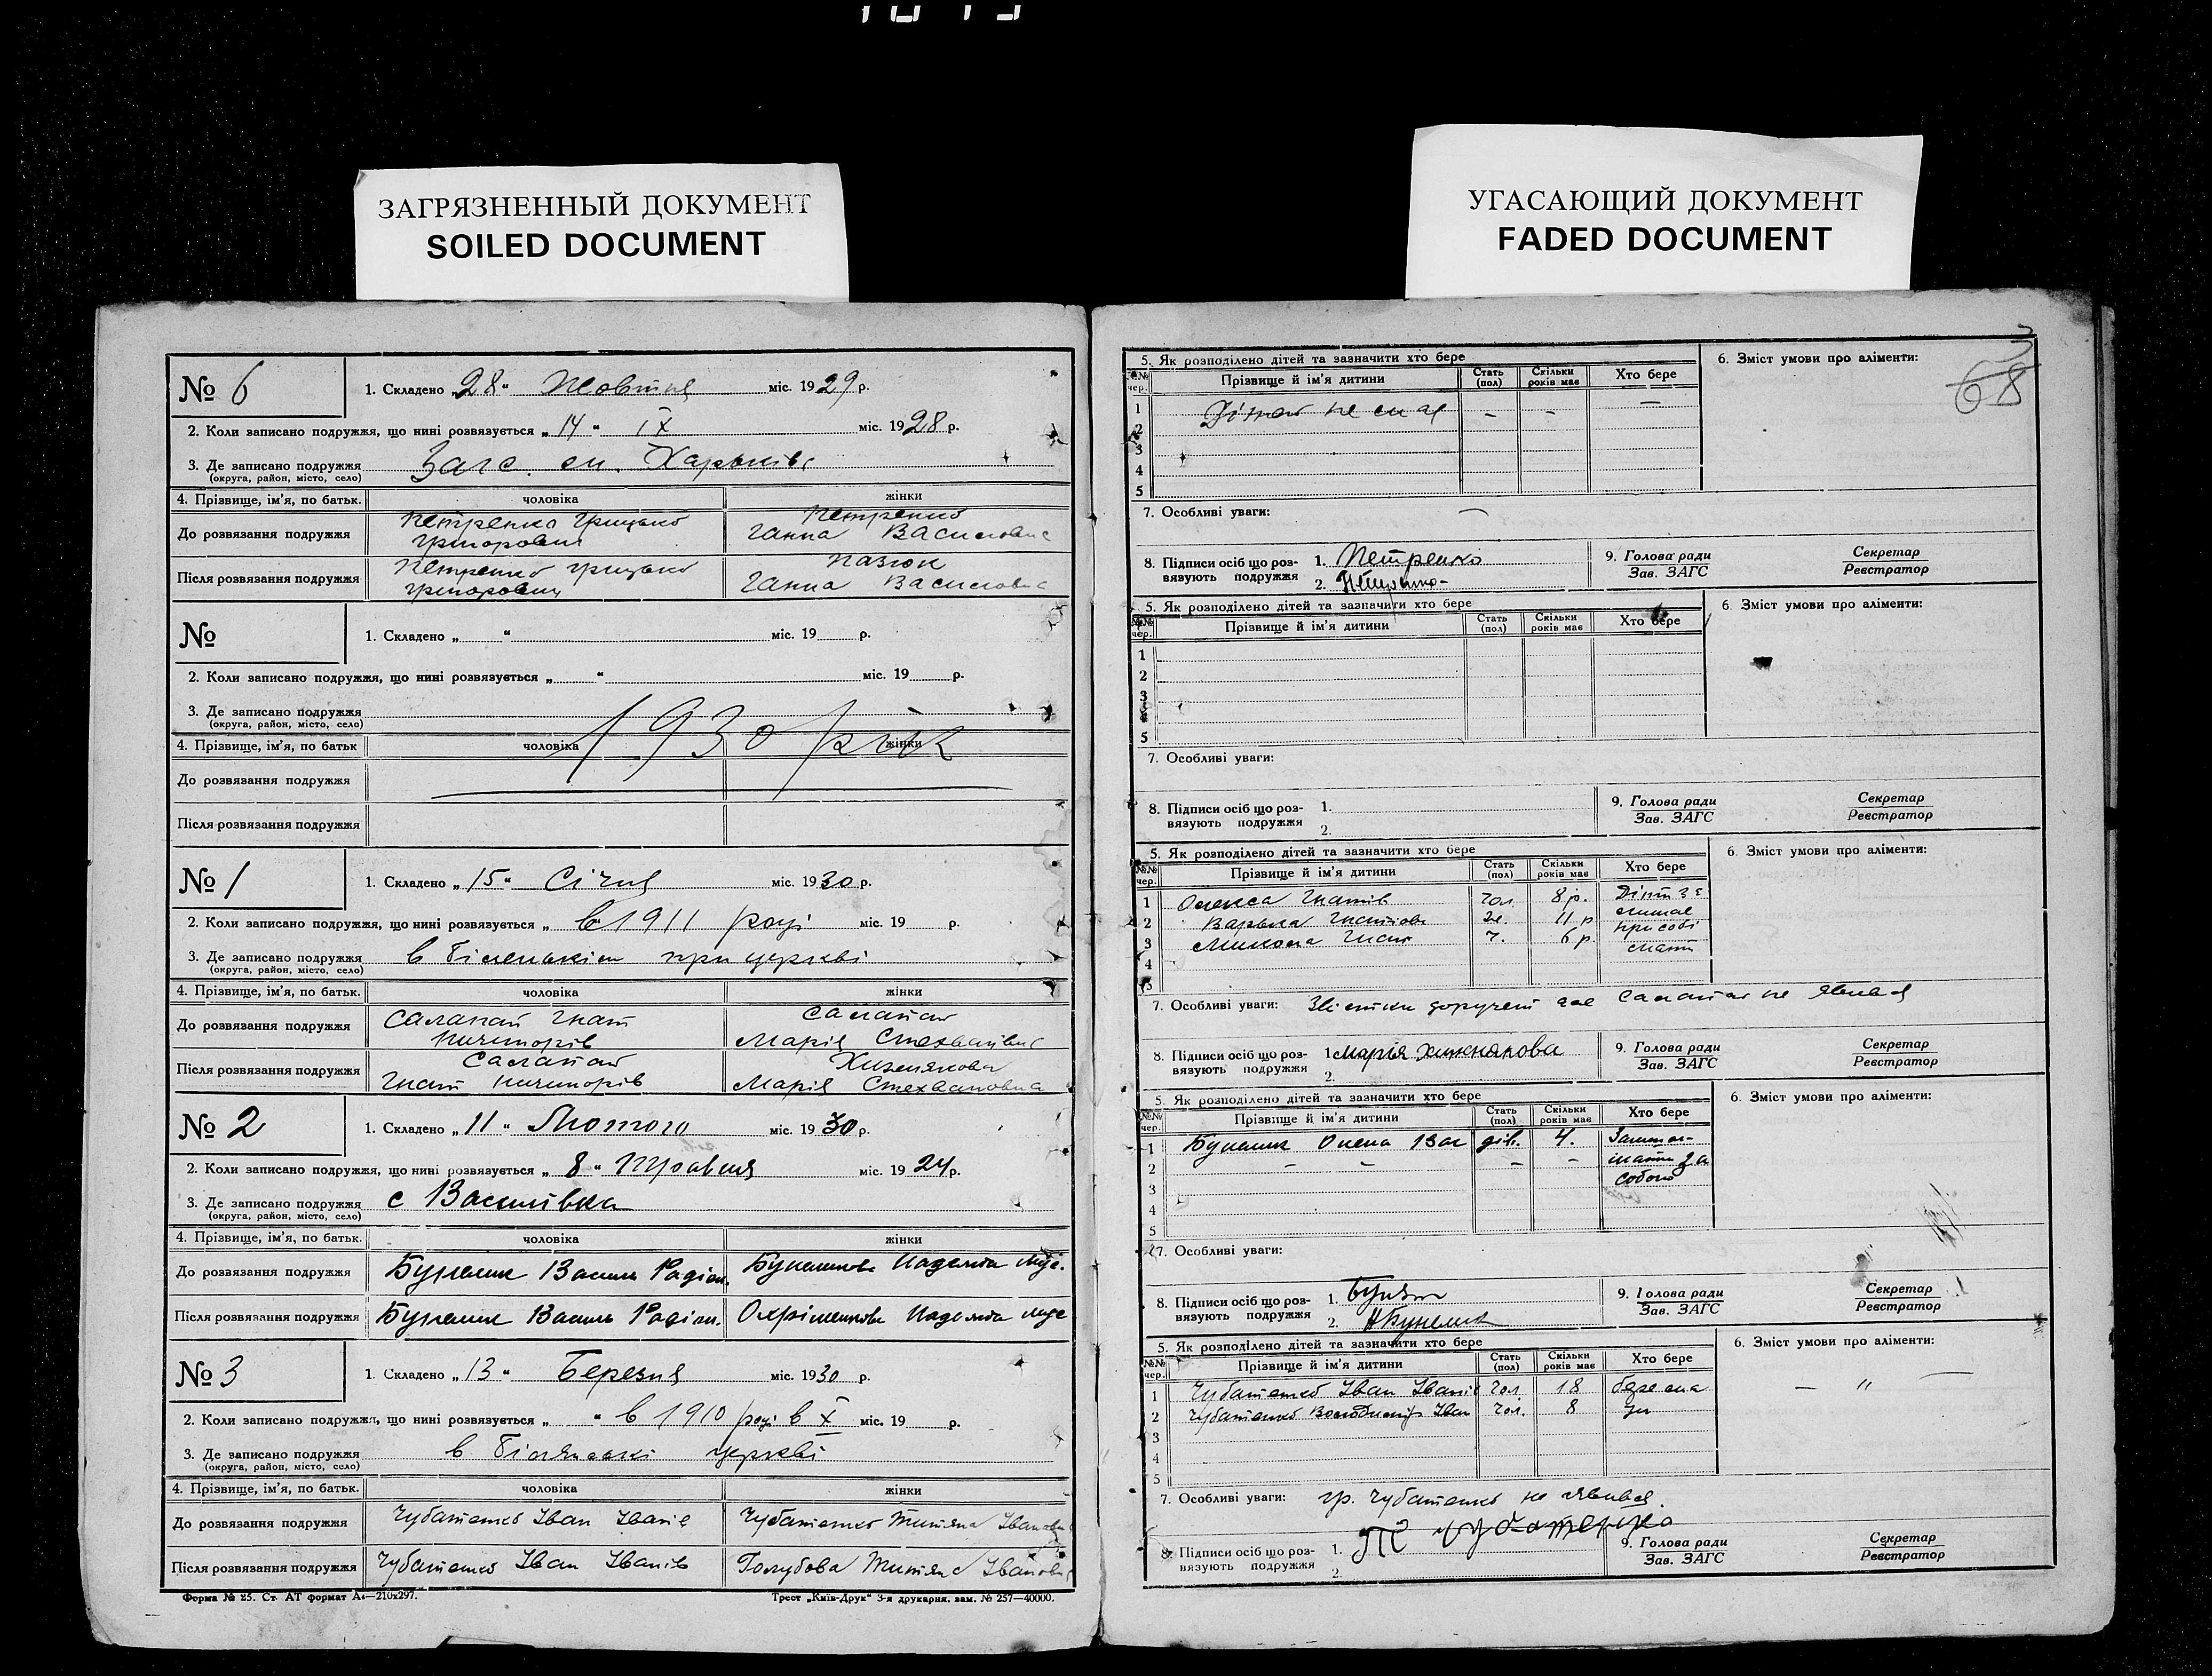 ЗАГРЯЗНЕННЫЙ ДОКУМЕНТ
SOILED DOCUMENT
УГАСАЮЩИЙ ДОКУМЕНТ
FADED DOCUMENT
№ 6
1. Складено „28“ Жовтня міс. 1929 р.
2. Коли записано подружжя, що нині розвязується „14“ IX міс. 1928 р.
3. Де записано подружжя Загс. см. Харьків
(округа, район, місто, село)
4. Прізвище, ім'я, по батьк. чоловіка жінки
До розвязання подружжя Петренко Грицько Григорович Петренко Ганна Василовна
Після розвязання подружжя Петренко Грицько Григорович Пазюк Ганна Василовна
№
1. Складено „ “ міс. 19 р.
2. Коли записано подружжя, що нині розвязується „ “ міс. 19 р.
3. Де записано подружжя
(округа, район, місто, село)
1930 рік
4. Прізвище, ім'я, по батьк чоловіка жінки
До розвязання подружжя
Після розвязання подружжя
№ 1
1. Складено „15“ Січня міс. 1930 р.
2. Коли записано подружжя, що нині розвязується „ в 1911 році міс. 19 р.
3. Де записано подружжя в Біленькім при церкві
(округа, район, місто, село)
4. Прізвище, ім'я, по батьк. чоловіка жінки
До розвязання подружжя Салапай Гнат Ничипорів Салапай Марія Стехванівна
Після розвязання подружжя Салапай Гнат Ничипорів Хижнякова Марія Стехвановна
№ 2
1. Складено „11“ Лютого міс. 1930 р.
2. Коли записано подружжя, що нині розвязується „8“ Травня міс. 1924 р.
3. Де записано подружжя с Василівка
(округа, район, місто, село)
4. Прізвище, ім'я, по батьк. чоловіка жінки
До розвязання подружжя Василь Радіон. Надежда
Після розвязання подружжя Василь Радіон. Охріменкова Надежда
№ 3
1. Складено „13“ Березня міс. 1930 р.
2. Коли записано подружжя, що нині розвязується „ “ в 1910 році в X міс. 19 р.
3. Де записано подружжя в церкві
(округа, район, місто, село)
4. Прізвище, ім'я, по батьк. чоловіка жінки
До розвязання подружжя Чубатенко Іван Іванів Чубатенко Титяна Івановн
Після розвязання подружжя Чубатенко Іван Іванів Голубова Титяна Івановн
Форма № 25. Ст. АТ формат А₄—210х297.
Трест „Київ-Друк“ 3-я друкарня. зам. № 257—40000.
68
5. Як розподілено дітей та зазначити хто бере
6. Зміст умови про аліменти:
№№ чер. Прізвище й ім'я дитини Стать (пол) Скільки років має Хто бере
1 Дітей не має – – –
2
3
4
5
7. Особливі уваги: —
8. Підписи осіб що розвязують подружжя 1. Петренко
2. Петренко
9. Голова ради Зав. ЗАГС Секретар Реєстратор
5. Як розподілено дітей та зазначити хто бере
6. Зміст умови про аліменти:
№№ чер. Прізвище й ім'я дитини Стать (пол) Скільки років має Хто бере
1
2
3
4
5
7. Особливі уваги:
8. Підписи осіб що розвязують подружжя 1.
2.
9. Голова ради Зав. ЗАГС Секретар Реєстратор
5. Як розподілено дітей та зазначити хто бере
6. Зміст умови про аліменти:
№№ чер. Прізвище й ім'я дитини Стать (пол) Скільки років має Хто бере
1 Олекса Гнатів Чол. 8 р.
2 Варька Гнатівн 11 р при собі
3 Микола Гнат ч. 6 р. мати
4
5
7. Особливі уваги: Салапай не явився
8. Підписи осіб що розвязують подружжя 1. Марія Хижнякова
2.
9. Голова ради Зав. ЗАГС Секретар Реєстратор
5. Як розподілено дітей та зазначити хто бере
6. Зміст умови про аліменти:
№№ чер. Прізвище й ім'я дитини Стать (пол) Скільки років має Хто бере
1 Олена Вас дів. 4.
2 – – – – мати за
3 собою
4
5
7. Особливі уваги:
8. Підписи осіб що розвязують подружжя 1.
2.
9. Голова ради Зав. ЗАГС Секретар Реєстратор
5. Як розподілено дітей та зазначити хто бере
6. Зміст умови про аліменти:
№№ чер. Прізвище й ім'я дитини Стать (пол) Скільки років має Хто бере
1 Чубатенко Іван Іванів Чол. 18 бере она — " —
2 Чубатенко Володимир Іван Чол. 8
3
4
5
7. Особливі уваги: гр. Чубатенко не явився.
8. Підписи осіб що розвязують подружжя 1. Т Чубатенко
2.
9. Голова ради Зав. ЗАГС Секретар Реєстратор